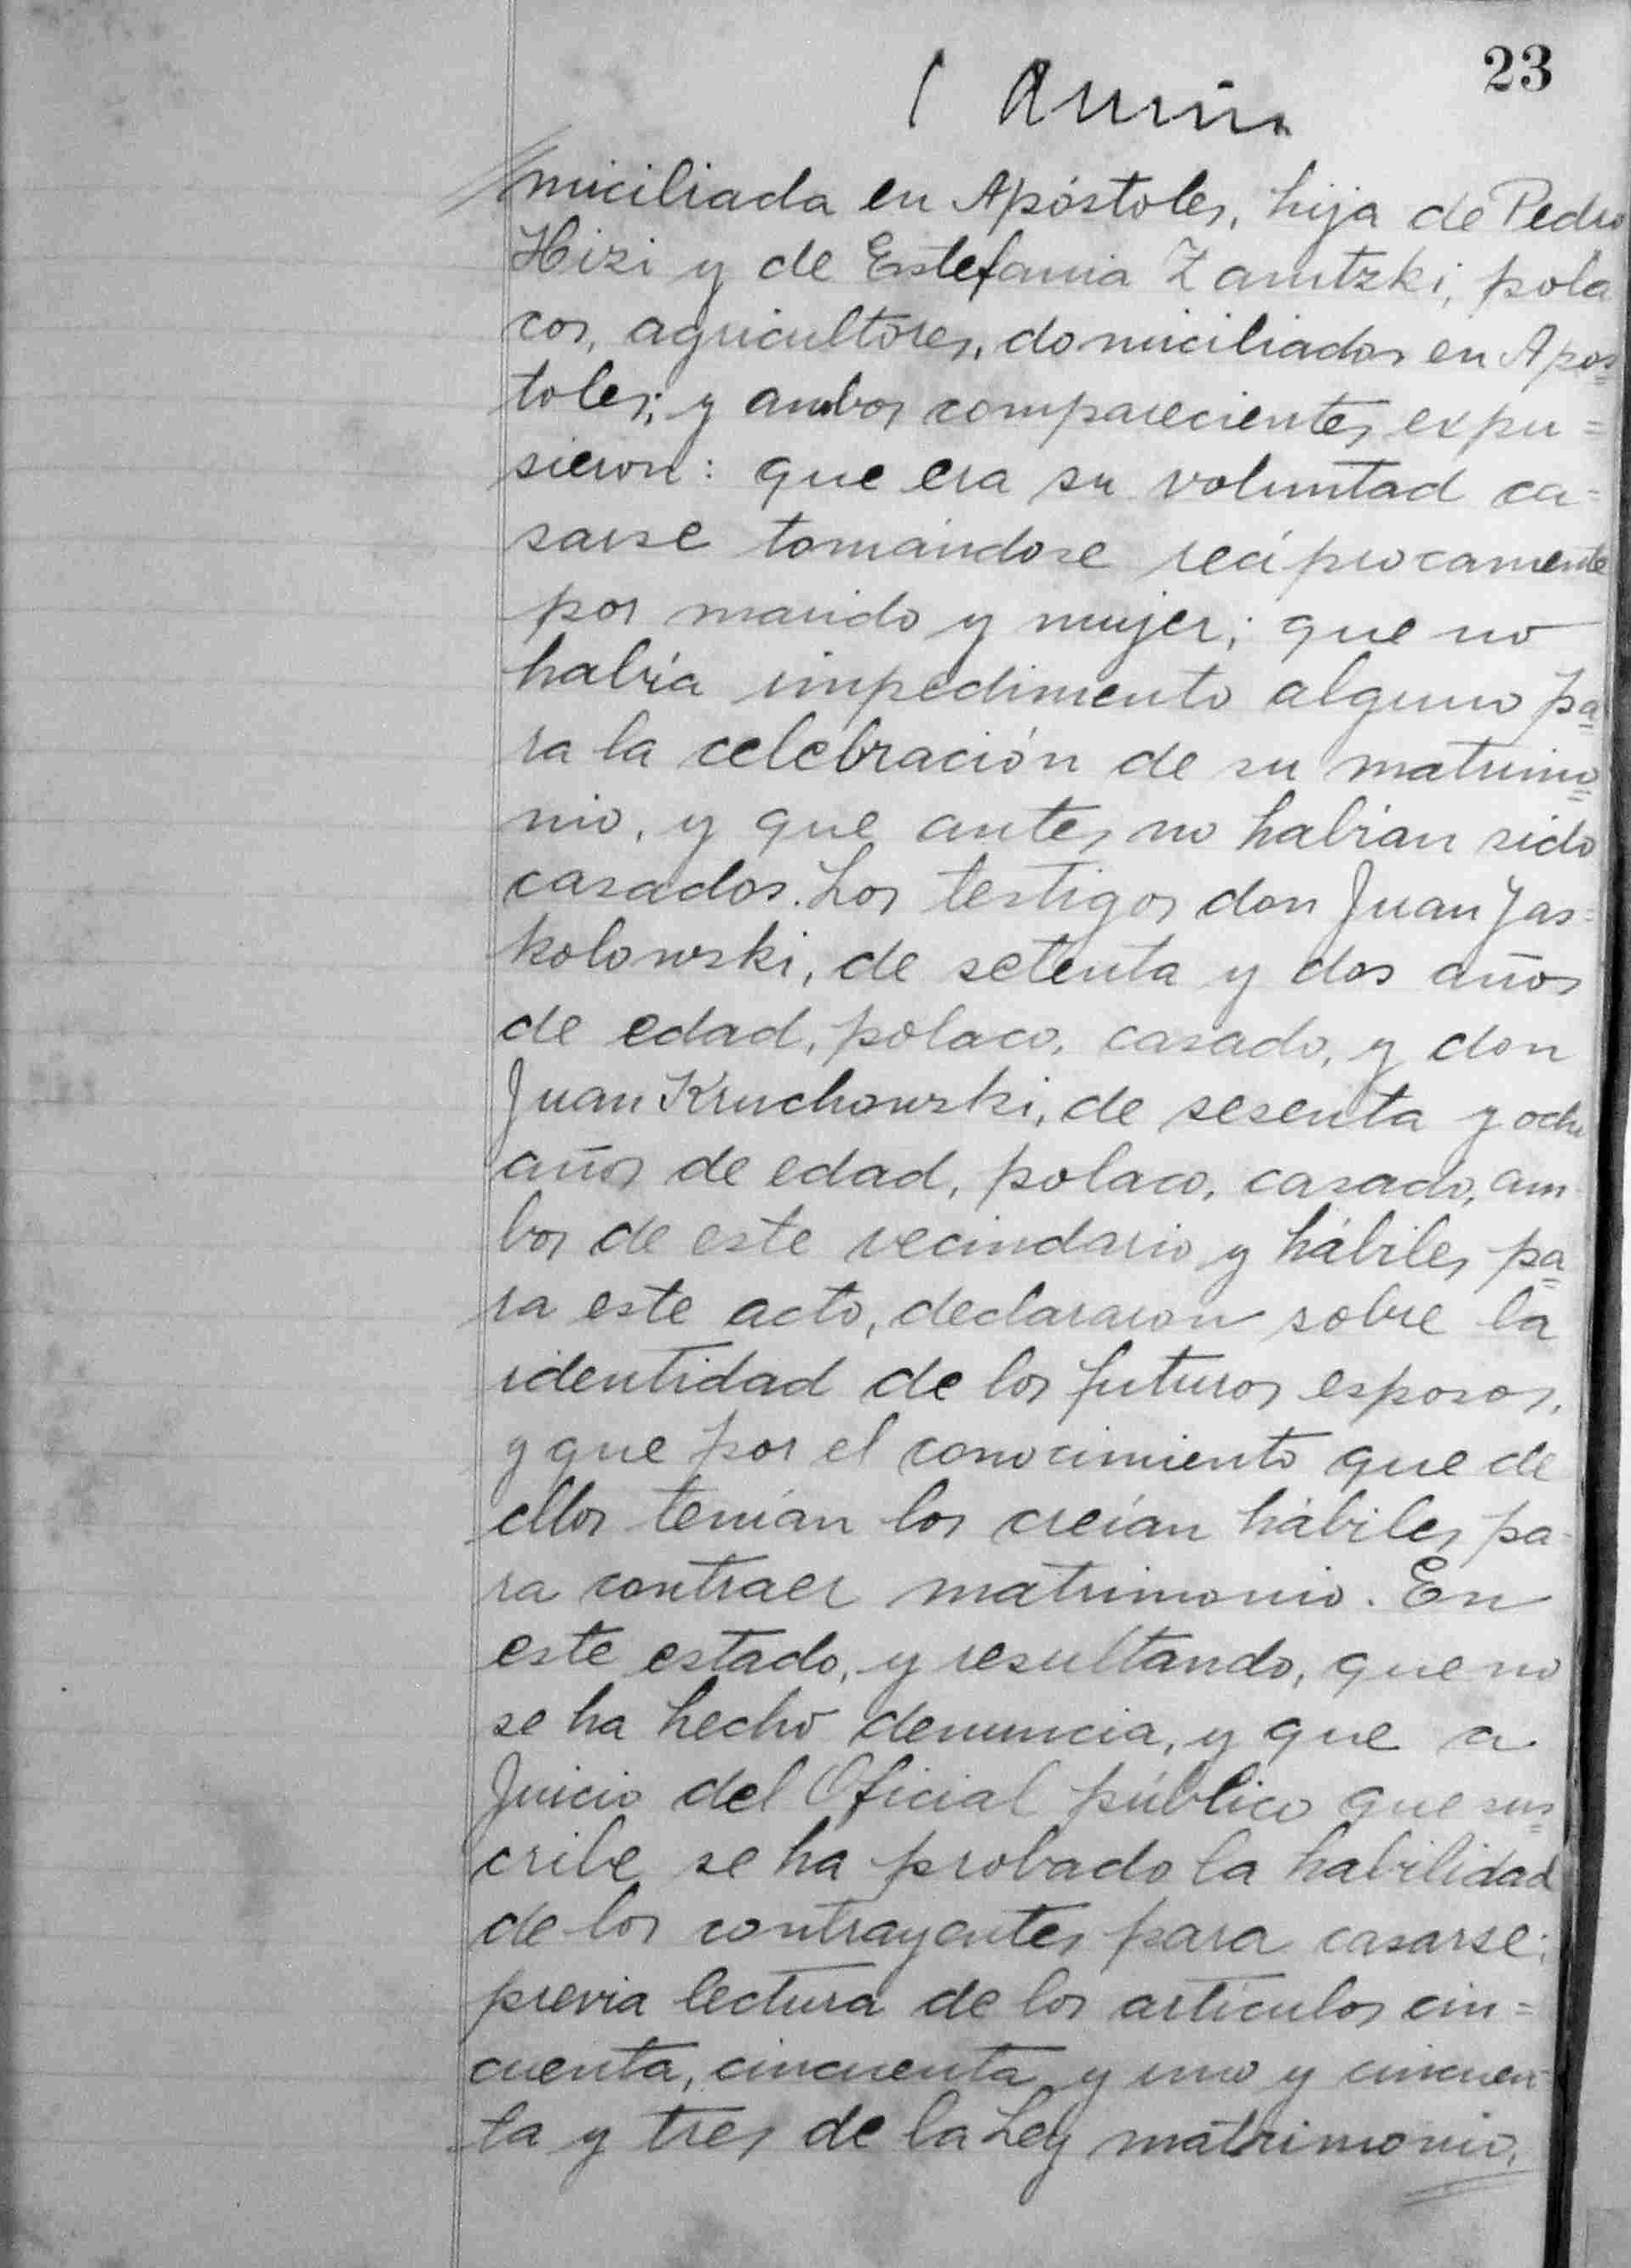 23
miciliada en Apóstoles, hija de Pedro
Hizi y de Estefania Zarutzki, pola
cos, agricultores, domiciliados en Apos=
toles; y ambos comparecientes expu=
sieron: que era su voluntad ca=
sarse tomándose recíprocamente
por marido y mujer; que no
había impedimento alguno pa=
ra la celebración de su matrimo=
nio, y que antes no habían sido
casados. Los testigos don Juan Jas=
kolowski, de setenta y dos años
de edad, polaco, casado, y don
Juan Kruchowski, de sesenta y ocho
años de edad, polaco, casado, am
bos de este vecindario y hábiles pa=
ra este acto, declararon sobre la
identidad de los futuros esposos,
y que por el conocimiento que de
ellos tenían los creían hábiles pa-
ra contraer matrimonio. En
este estado, y resultando, que no
se ha hecho denuncia, y que a
Juicio del Oficial público que sus=
cribe se ha probado la habilidad
de los contrayentes para casarse;
previa lectura de los artículos cin=
cuenta, cincuenta y uno y cincuen
ta y tres de la Ley matrimonio,